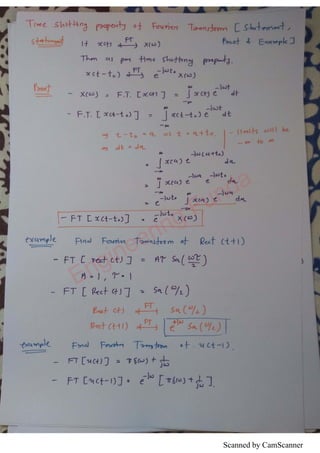 Time shifting property of Fourier Transform [Statement,
Proof & Example]
Statement If x(t) ⟷FT X(ω)
Then as per time shifting property,
x(t-t₀) ⟷FT e^{-jωt₀} X(ω)
Proof - X(ω) = F.T. [x(t)] = ∫_{-∞}^{∞} x(t) e^{-jωt} dt
- F.T. [x(t-t₀)] = ∫_{-∞}^{∞} x(t-t₀) e^{-jωt} dt
⇒ t-t₀ = u ⇒ t = u+t₀ | - limits will be
⇒ dt = du | -∞ to ∞
= ∫_{-∞}^{∞} x(u) e^{-jω(u+t₀)} du
= ∫_{-∞}^{∞} x(u) e^{-jωu} e^{-jωt₀} du
= e^{-jωt₀} ∫_{-∞}^{∞} x(u) e^{-jωu} du
- FT [x(t-t₀)] = e^{-jωt₀} X(ω)
example Find Fourier Transform of Rect (t+1)
- FT [rect(t)] = Aτ Sa(ωτ/2)
A = 1, τ = 1
- FT [Rect(t)] = Sa(ω/2)
Rect(t) ⟷FT Sa(ω/2)
Rect(t+1) ⟷FT e^{jω} Sa(ω/2)
example Find Fourier Transform of u(t-1).
- FT[u(t)] = πδ(ω) + 1/jω
- FT[u(t-1)] = e^{-jω} [πδ(ω) + 1/jω].
Scanned by CamScanner